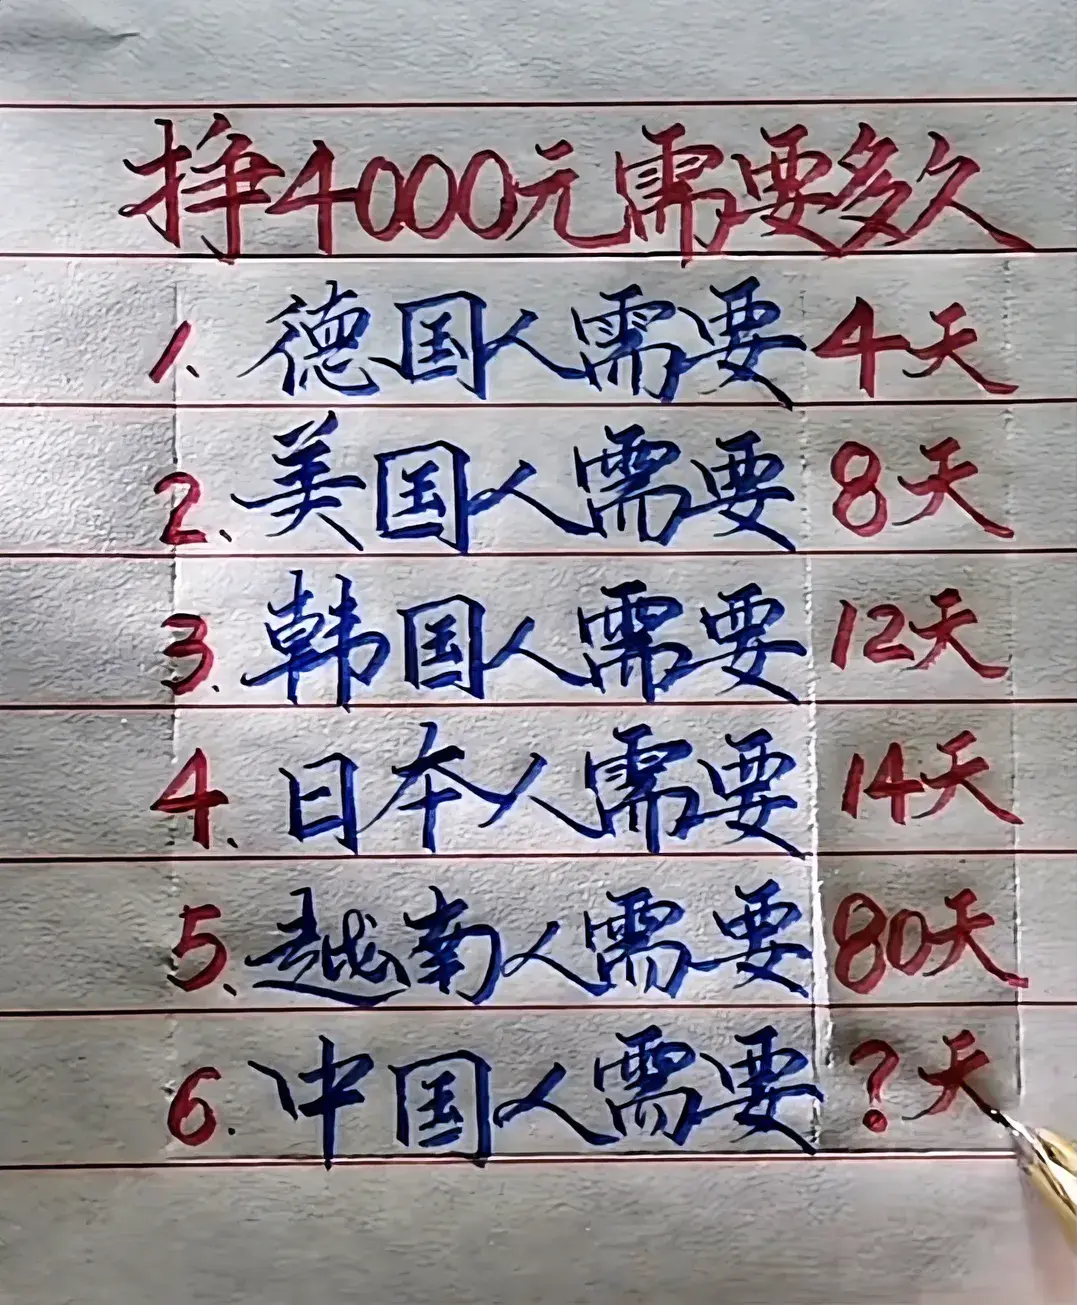 挣4000元需要多久
1、德国人需要4天
2、美国人需要8天
3.韩国人需要12天
4、日本人需要14天
5、越南人需要80天
6.中国人需要?天